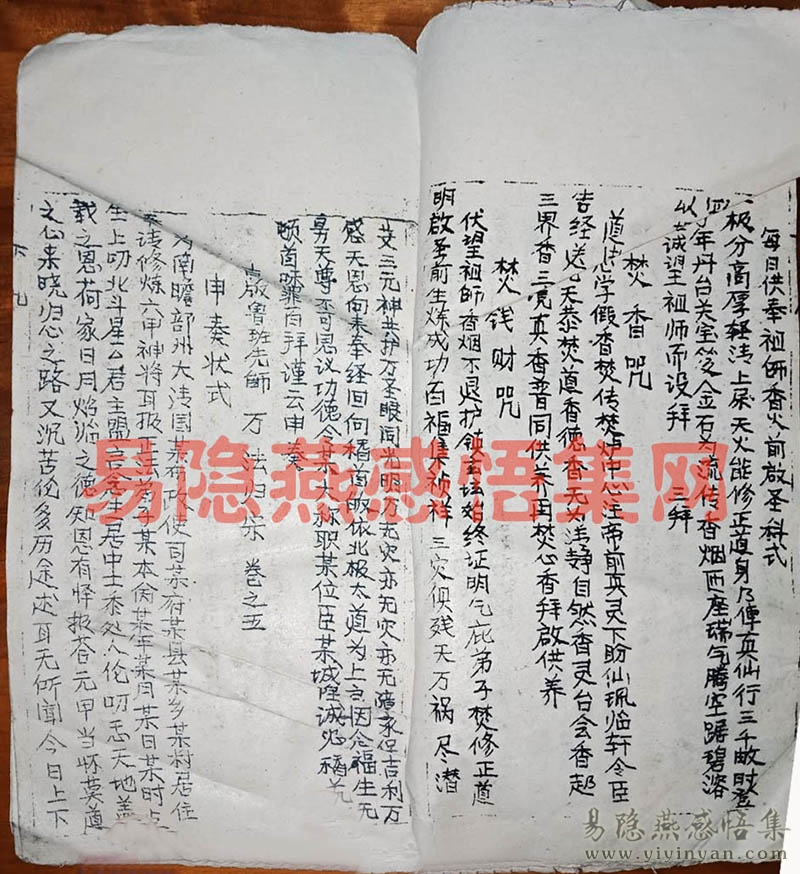 每日供奉祖师香火前启圣科式
二极分高厚轻清上属天火能修正道身乃俾真仙行三千歃时登
四年丹台关宝箓金石为流传香烟两座瑞气腾空踞碧落
以诚望祖师而设拜 三拜
焚香咒
道由心学假香焚传焚炉中心注帝前真灵下盼仙珮临轩令臣
告经送天恭焚道香德香无为清静自然香灵台会香超
三界香三境真香普同供养用焚心香拜启供养
焚钱财咒
伏望祖師香烟不退护坛始终证明气庇弟子焚修正道
明啟圣前生炼成功百福集祯祥三灾俱残灭万祸尽潜
艾三元神共护万圣眼同光明万无灾亦无灾亦无障家保吉利万
感天恩向来奉经回向稽首皈依北极太道为上言因念福生无
量天尊不可思议功德今某大称职某位臣某城隍诚心稽首
顿首昧罪百拜谨云申奏
敬鲁班先師 万法归宗 卷之五
申奏状式
为南瞻部州大清国某布政使司某府某县某乡某村居住
奉法修炼六甲神将耳报正法弟子某本命某年某月某日某时上
生上叨北斗星公君主盟言念生居中土忝处人伦叨天地盖
载之恩荷家日月焰临之德知恩有怿报荅元甲当怀莫道
之心未晓归心之路又沉苦伦多历途述耳无所闻今日上下
六九
易隐燕感悟集网
易隐燕感悟集
www.yiyinyan.com